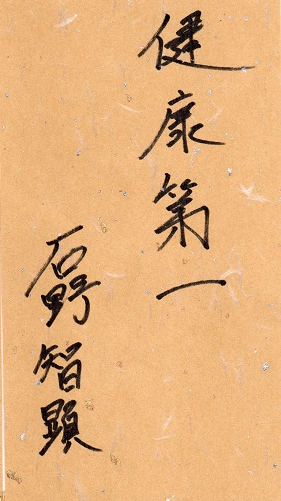 健康第一
石野智顕